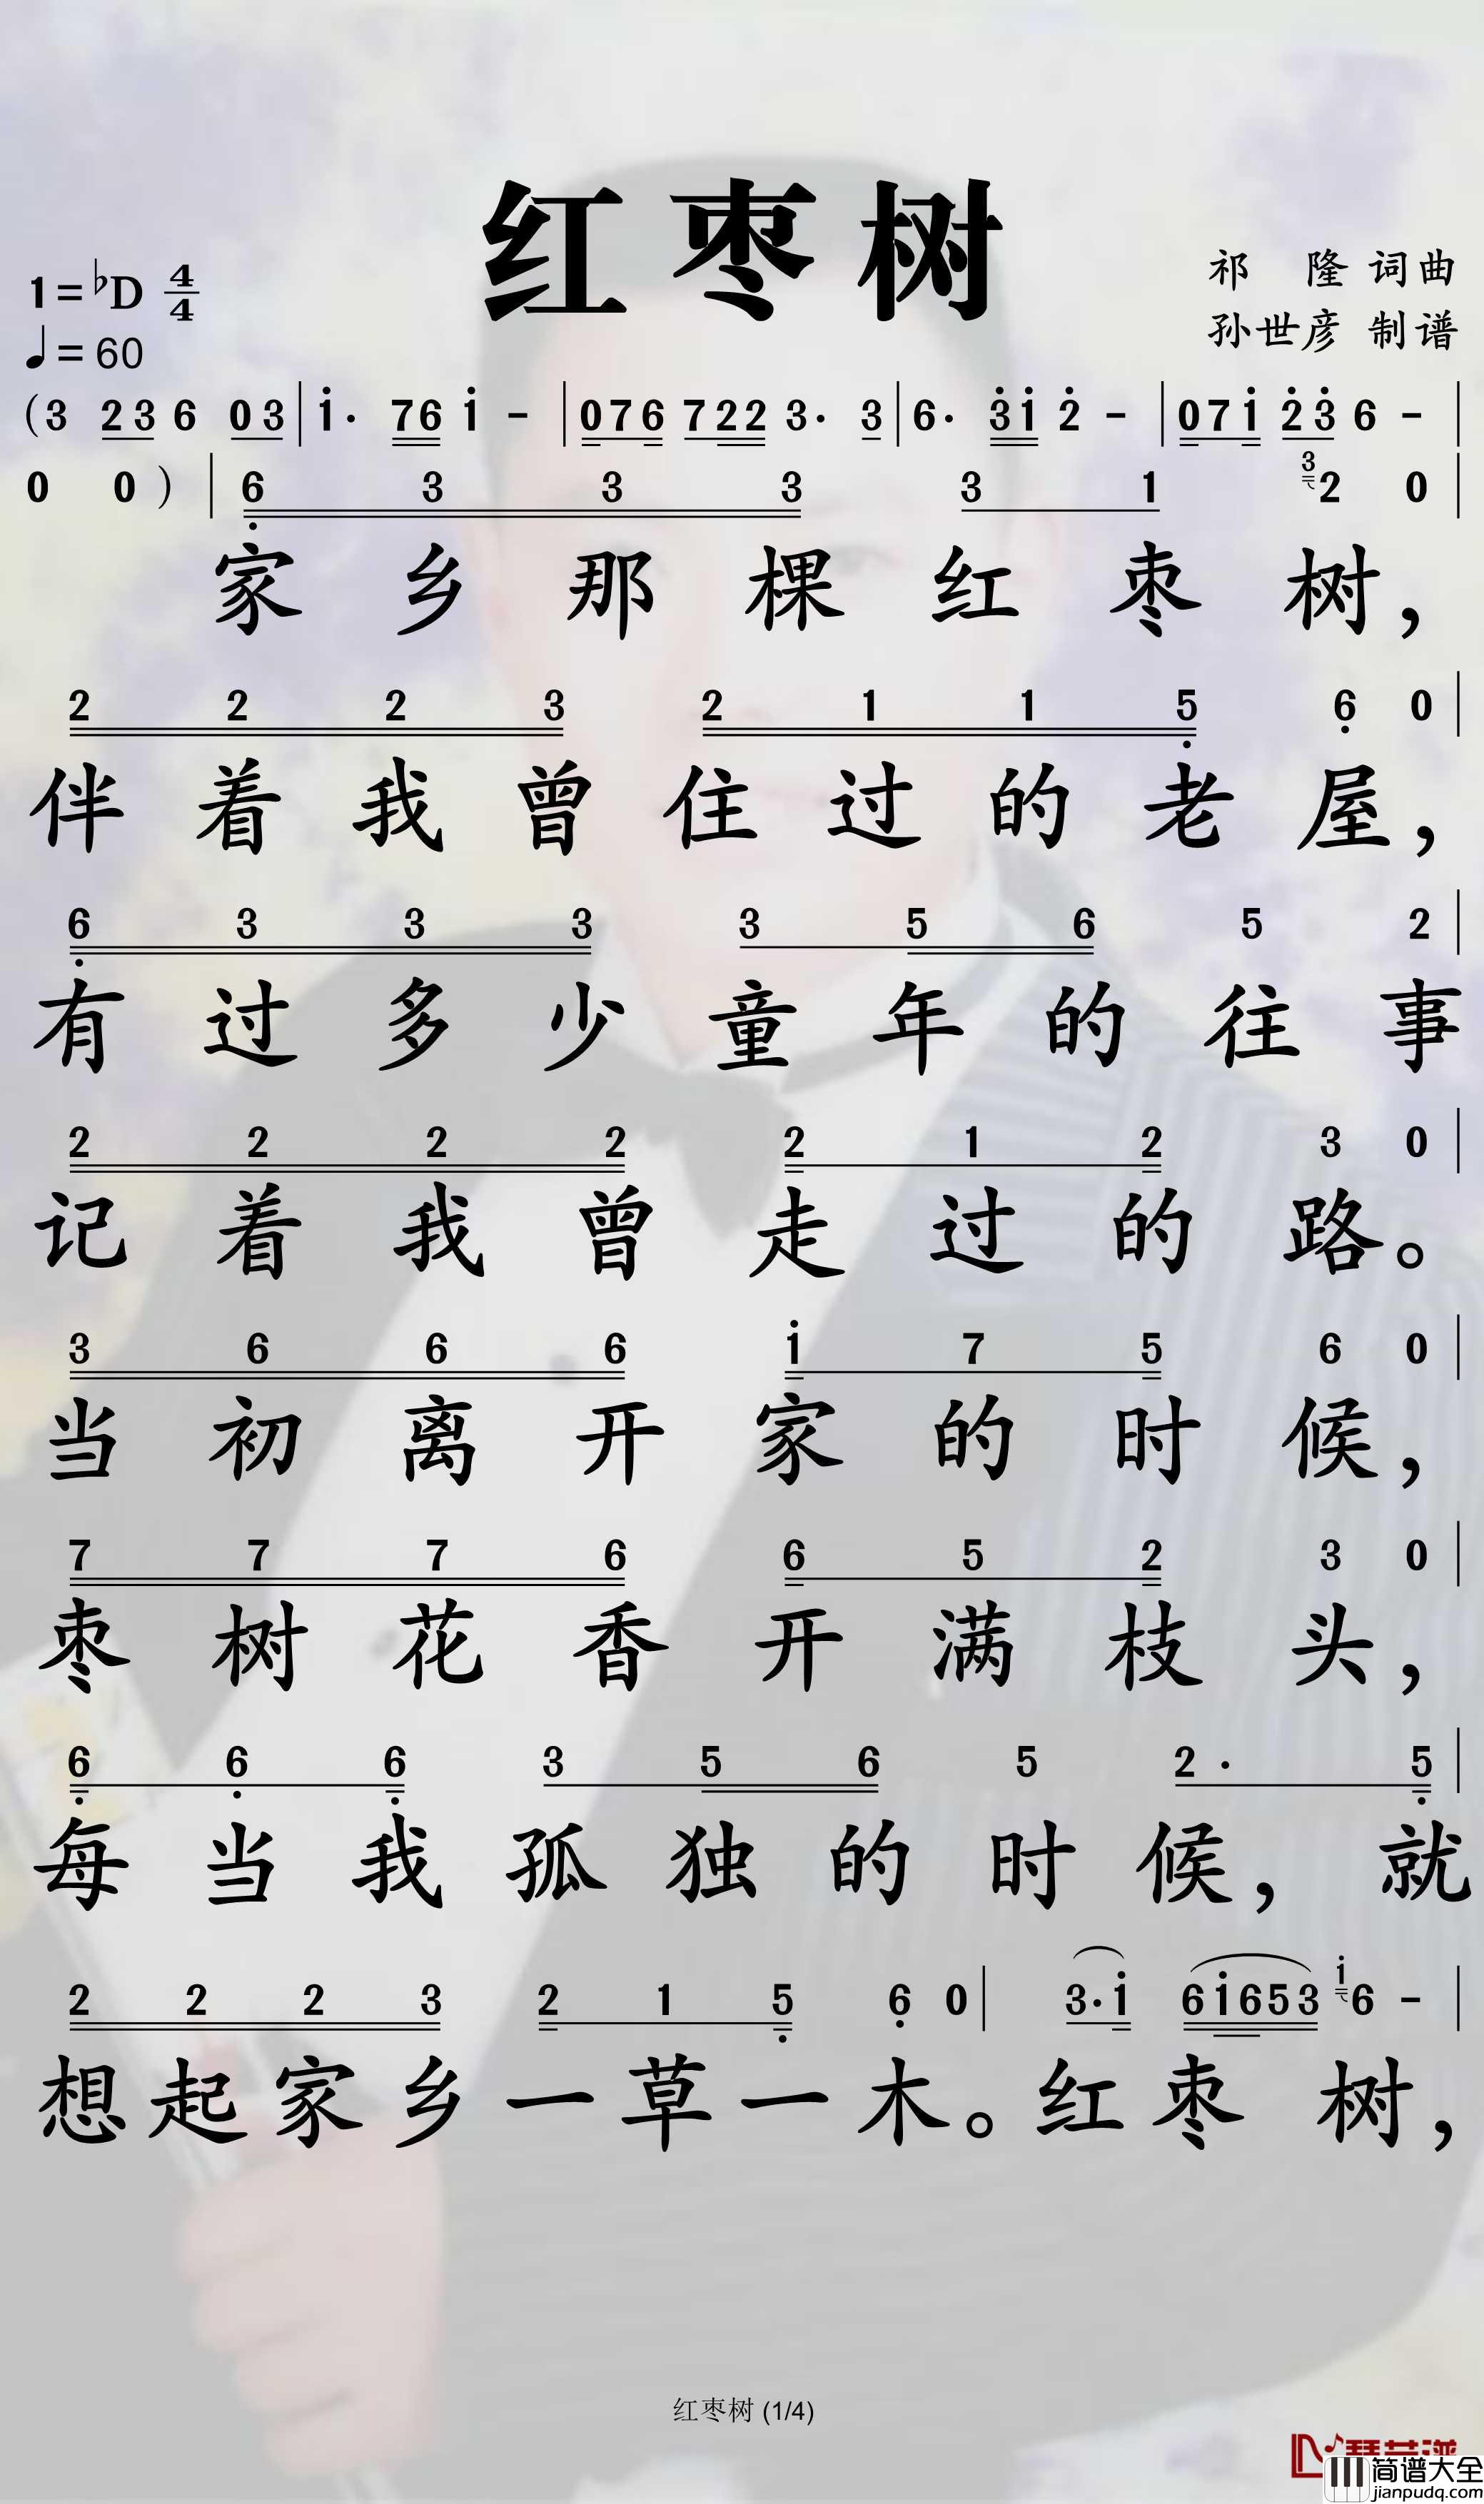 红枣树
1=♭D 4/4
♩=60
祁 隆 词曲
孙世彦 制谱
(3 23 6 03 | i· 76 i - | 076 722 3· 3 | 6· 3i 2 - | 07i 23 6 - |
0 0 ) | 6 3 3 3 3 1 3 2 0 |
家乡那棵红枣树，
2 2 2 3 2 1 1 5 6 0 |
伴着我曾住过的老屋，
6 3 3 3 3 5 6 5 2 |
有过多少童年的往事
2 2 2 2 2 1 2 3 0 |
记着我曾走过的路。
3 6 6 6 i 7 5 6 0 |
当初离开家的时候，
7 7 7 6 6 5 2 3 0 |
枣树花香开满枝头，
6 6 6 3 5 6 5 2· 5 |
每当我孤独的时候，就
2 2 2 3 2 1 5 6 0 | 3·i 6i653 i 6 - |
想起家乡一草一木。红枣树，
红枣树 (1/4)
简谱大全
jianpudq.com